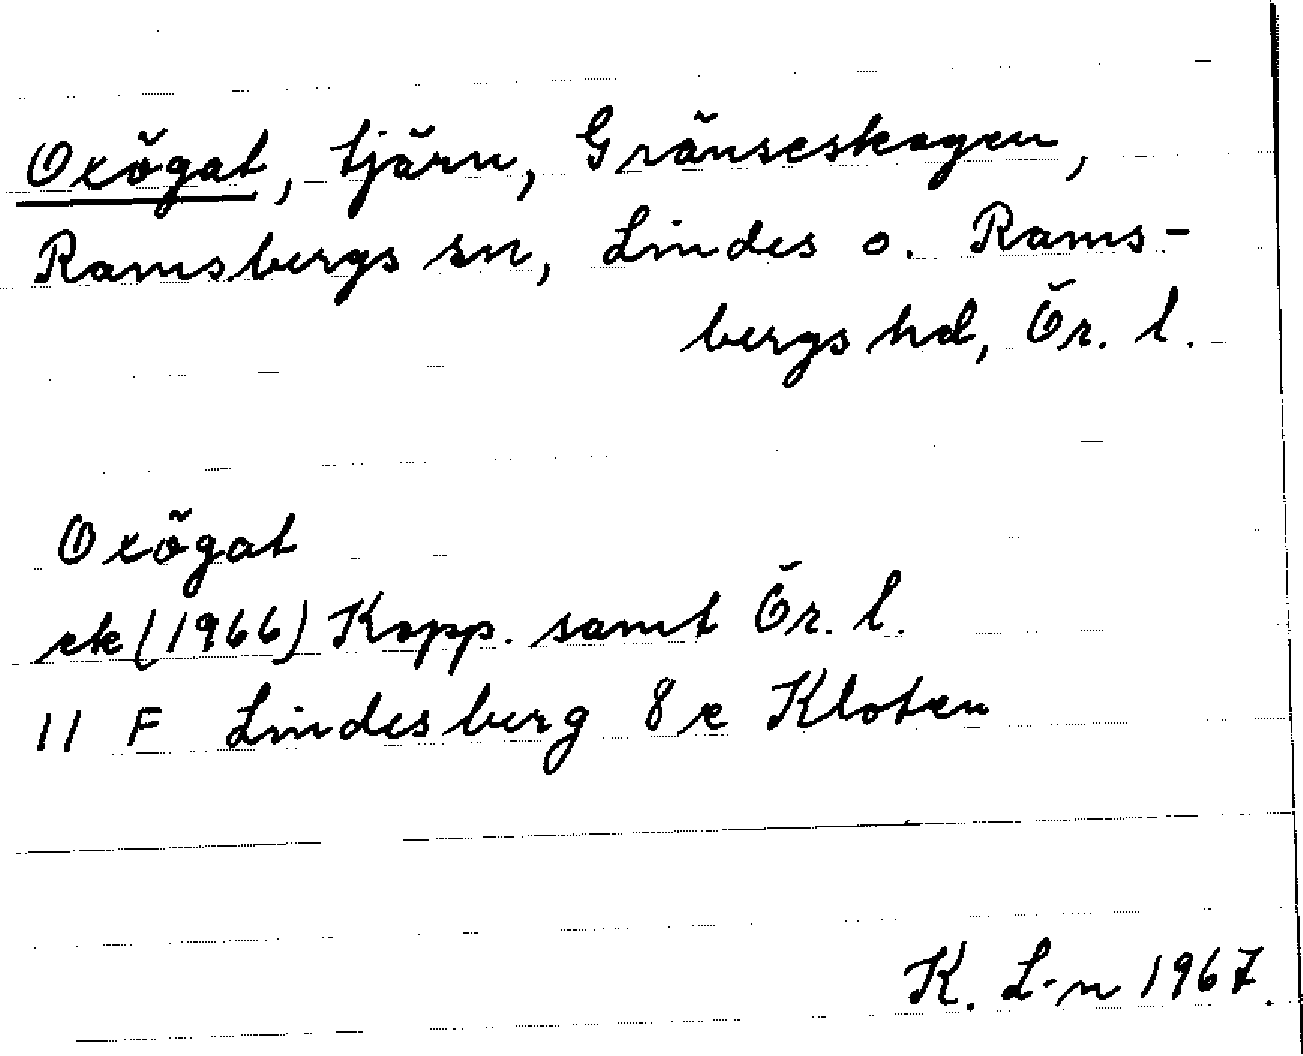 Oxögat, tjärn, Gränseskogen,
Ramsbergs sn, Lindes o. Rams-
bergs hd, Ör. l.
Oxögat
ek (1966) Kopp. samt Ör. l.
11 F Lindesberg 8e Kloten
K. L-n 1967.